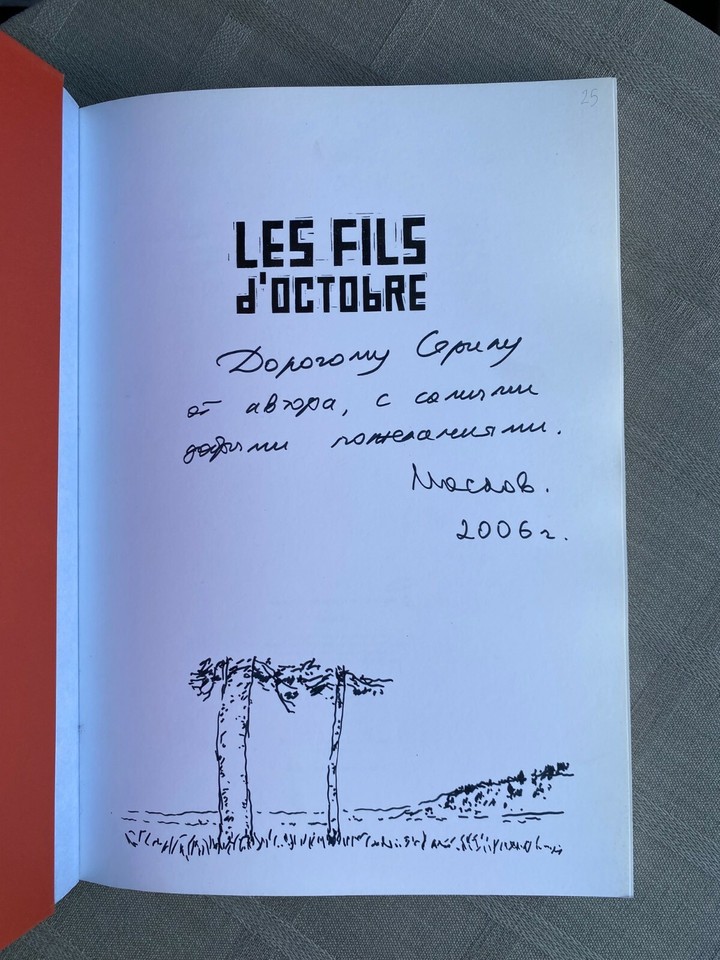 25
LES FILS
d'OCTOBRE
Дорогому
от автора, с самыми
добрыми пожеланиями.
Маслов.
2006 г.